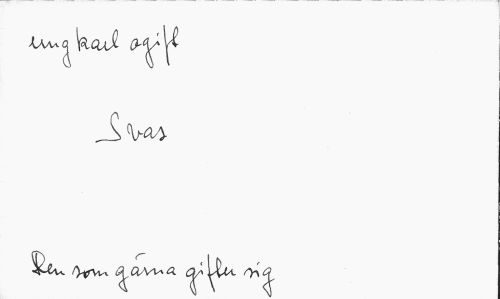 ungkarl ogift
Svas
Den som gärna gifter sig